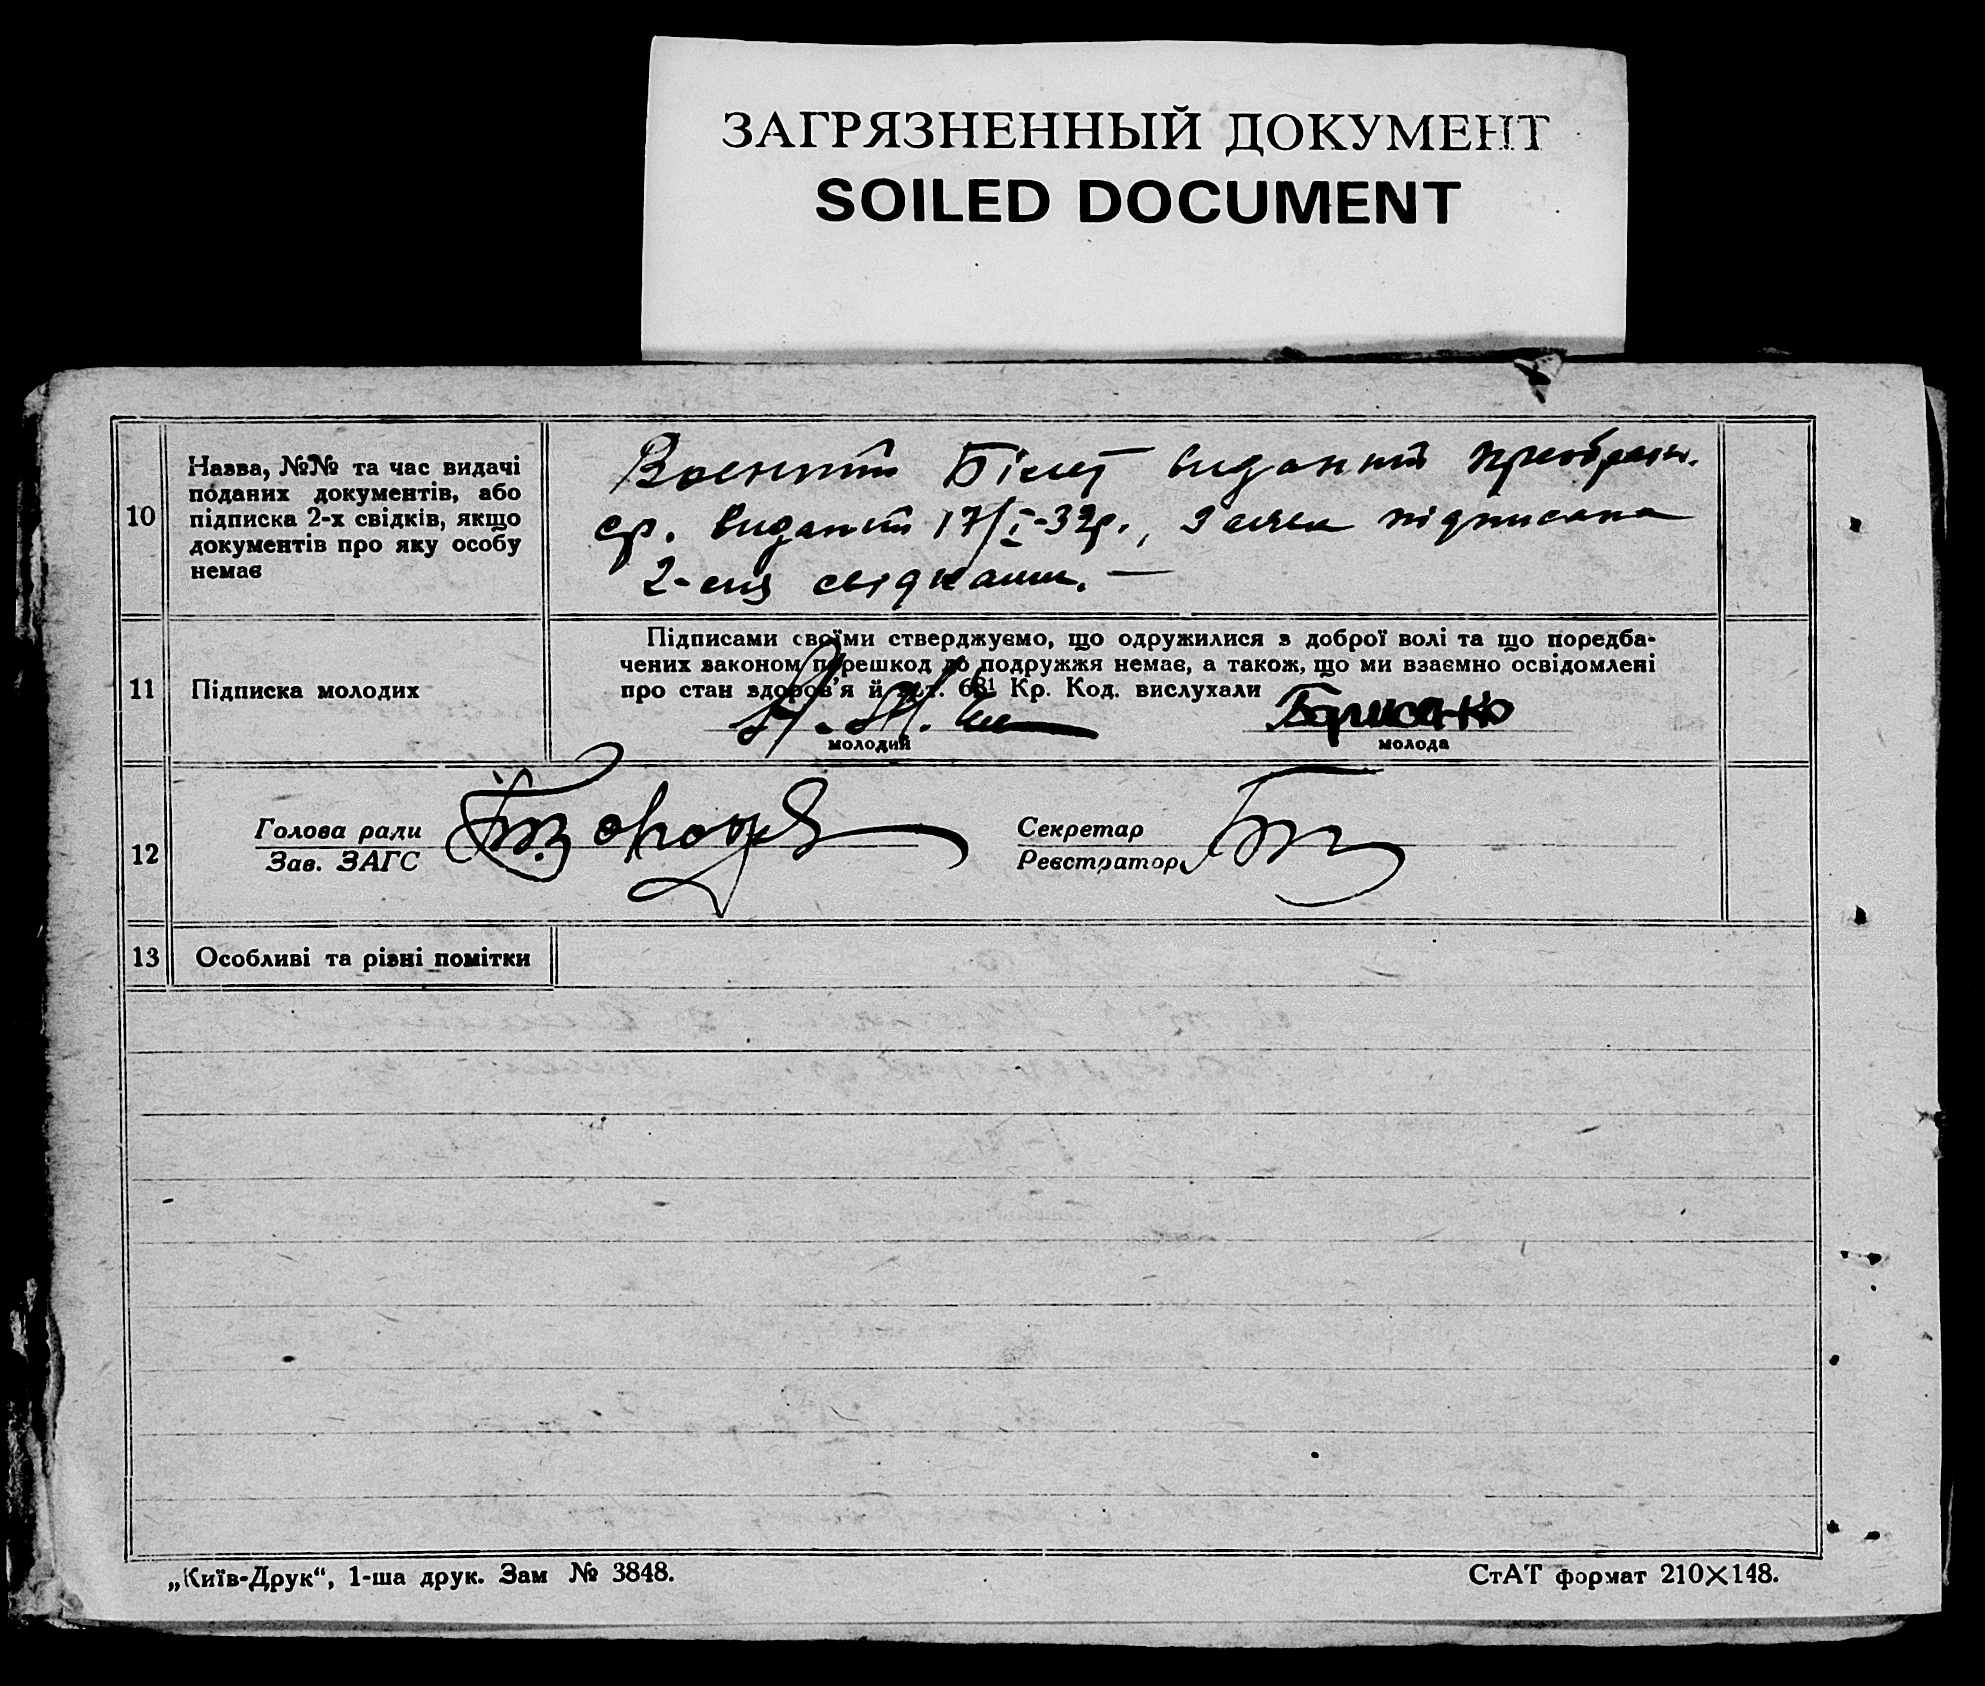 ЗАГРЯЗНЕННЫЙ ДОКУМЕНТ
SOILED DOCUMENT
10
Назва, №№ та час видачі
поданих документів, або
підписка 2-х свідків, якщо
документів про яку особу
немає
Военний Білет виданий
ср. виданий 17/I-32р., заява підписана
2-ма свідками. —
11
Підписка молодих
Підписами своїми стверджуємо, що одружилися з доброї волі та що поредба-
чених законом перешкод до подружжя немає, а також, що ми взаємно освідомлені
про стан здоров'я й арт. 68¹ Кр. Код. вислухали
Борисенко
молодий
молода
12
Голова ради
Зав. ЗАГС
Секретар
Реєстратор
13
Особливі та різні помітки
„Київ-Друк“, 1-ша друк. Зам № 3848.
СтАТ формат 210×148.